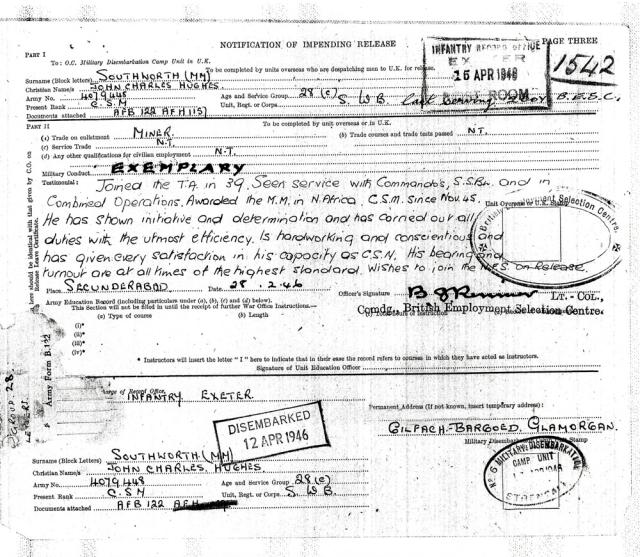 NOTIFICATION OF IMPENDING RELEASE
PAGE THREE
INFANTRY RECORD OFFICE
EXETER
15 APR 1946
POST ROOM
1542
PART I
To: O.C. Military Disembarkation Camp Unit in U.K.
To be completed by units overseas who are despatching men to U.K. for release.
Surname (Block letters) SOUTHWORTH (MM)
Christian Name/s JOHN CHARLES HUGHES
Army No. 4079448 Age and Service Group 28 (c)
Present Rank C.S.M Unit, Regt. or Corps. S. W B. B.E.S.C.
Documents attached AFB 122 AFH 1157
PART II To be completed by unit overseas or in U.K.
(a) Trade on enlistment MINER (b) Trade courses and trade tests passed N.T.
(c) Service Trade N.T.
(d) Any other qualifications for civilian employment N.T.
Military Conduct EXEMPLARY
Testimonial: Joined the T.A. in 39. Seen service with Commandos, S.S.Bn. and in
Combined Operations. Awarded the M.M. in N.Africa. C.S.M. since Nov.45.
Unit Overseas or U.K. Stamp
He has shown initiative and determination and has carried out all
duties with the utmost efficiency. Is hardworking and conscientious and
has given every satisfaction in his capacity as C.S.M. His bearing and
turnout are at all times of the highest standard. Wishes to join the N.F.S. on Release.
British Employment Selection Centre.
Place SECUNDERABAD Date 28 . 2 .46 Officer's Signature
LT. - COL.,
Comdg. British Employment Selection Centre.
Army Education Record (including particulars under (a), (b), (c) and (d) below).
This Section will not be filled in until the receipt of further War Office Instructions.—
(a) Type of course (b) Length
(i)*
(ii)*
(iii)*
(iv)*
* Instructors will insert the letter "I" here to indicate that in their case the record refers to courses in which they have acted as instructors.
Signature of Unit Education Officer
here should be identical with that given by C.O. on
Release Leave Certificate.
Army Form B.
GROUP 28.
of Record Office,
INFANTRY EXETER
DISEMBARKED
12 APR 1946
Permanent Address (If not known, insert temporary address):
GILFACH-BARGOED, GLAMORGAN.
Military Disembarkation Stamp
No 6 MILITARY DISEMBARKATION
CAMP UNIT
APR 1946
Surname (Block Letters) SOUTHWORTH (MM)
Christian Name/s JOHN CHARLES, HUGHES
Army No. 4079448 Age and Service Group 28 (c)
Present Rank C.S.M Unit, Regt. or Corps. S. W B.
Documents attached AFB 122